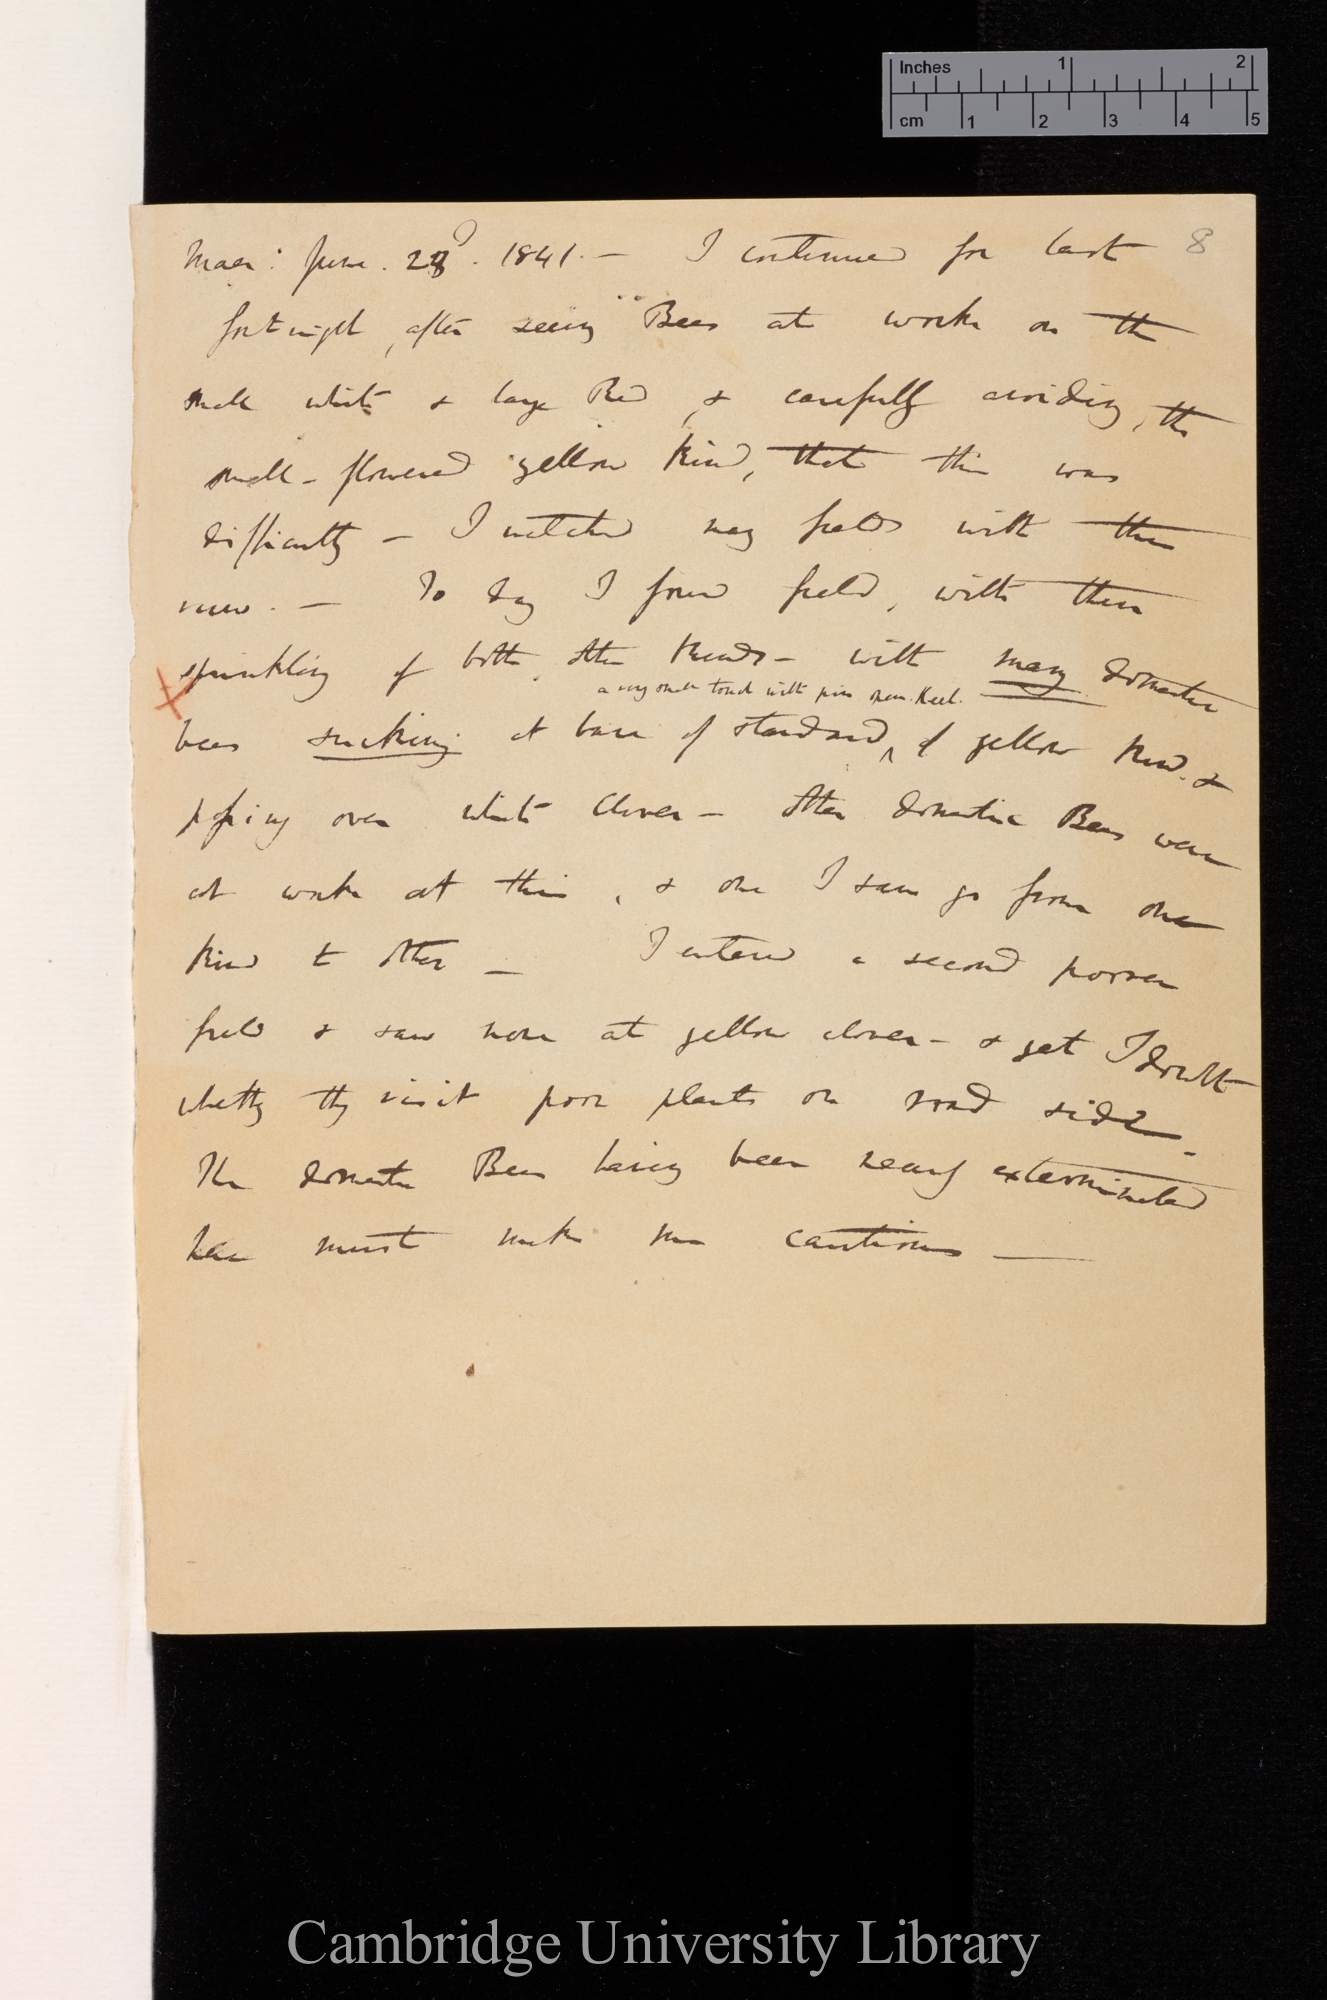 Inches 1 2
cm 1 2 3 4 5
8
Maer: June. 28? 1841. — I continued for last
fortnight, after seeing Bees at work on the
small white & large Red, & carefully avoiding, the
small-flowered yellow kind, that this was
difficulty — I watched many fields with this
view. — To day I found field, with
sprinkling of both other kinds — with many domestic
a very small touch with pin opens Keel.
bees sucking at base of standard, of yellow kind. &
passing over white Clover — other domestic Bees were
at work at this, & one I saw go from one
kind to other — I entered a second
field & saw none at yellow clover — & yet I doubt
whether they visit poor plants on road side —
The domestic Bees having been nearly exterminated
here must make me cautious —
Cambridge University Library